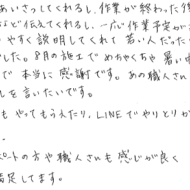 あいさつしてくれるし、作業が終わった後
など伝えてくれるし、一応作業予定が
やすく説明してくれて 若い人だった
した。8月の施工で めちゃくちゃ 暑い
で 本当に 感謝です。あの職人さん
しを言いたいです。
も やってもらえたり、LINEで やりとりが
。
ペートの方や 職人さんも 感じが良く
満足してます。